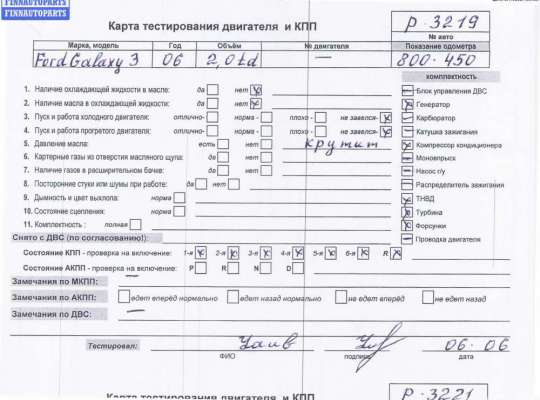 FINNAUTOPARTS
FINNAUTOPARTS
Карта тестирования двигателя и КПП
р-3219
№ авто
Марка, модель Год Объём № двигателя Показание одометра
Ford Galaxy 3 06 2,0td — 800-450
комплектность
1. Наличие охлаждающей жидкости в масле: да нет
Блок управления ДВС
2. Наличие масла в охлаждающей жидкости: да нет
Генератор
3. Пуск и работа холодного двигателя: отлично- норма - плохо - не завелся-
Карбюратор
4. Пуск и работа прогретого двигателя: отлично- норма - плохо - не завелся-
Катушка зажигания
5. Давление масла: есть нет крутит
Компрессор кондиционера
6. Картерные газы из отверстия масляного щупа: да нет
Моновпрыск
7. Наличие газов в расширительном бачке: да нет
Насос г/у
8. Посторонние стуки или шумы при работе: да нет
Распределитель зажигания
9. Дымность и цвет выхлопа: норма
ТНВД
10. Состояние сцепления: норма
Турбина
11. Комплектность : полная
Форсунки
Снято с ДВС (по согласованию!):
Проводка двигателя
Состояние КПП - проверка на включение: 1-я 2-я 3-я 4-я 5-я 6-я R
Состояние АКПП - проверка на включение: P R N D
Замечания по МКПП: —
Замечания по АКПП: едет вперёд нормально едет назад нормально не едет вперёд не едет назад
Замечания по ДВС: —
Тестировал: 06.06
ФИО подпись дата
Карта тестирования двигателя и КПП
р-3221